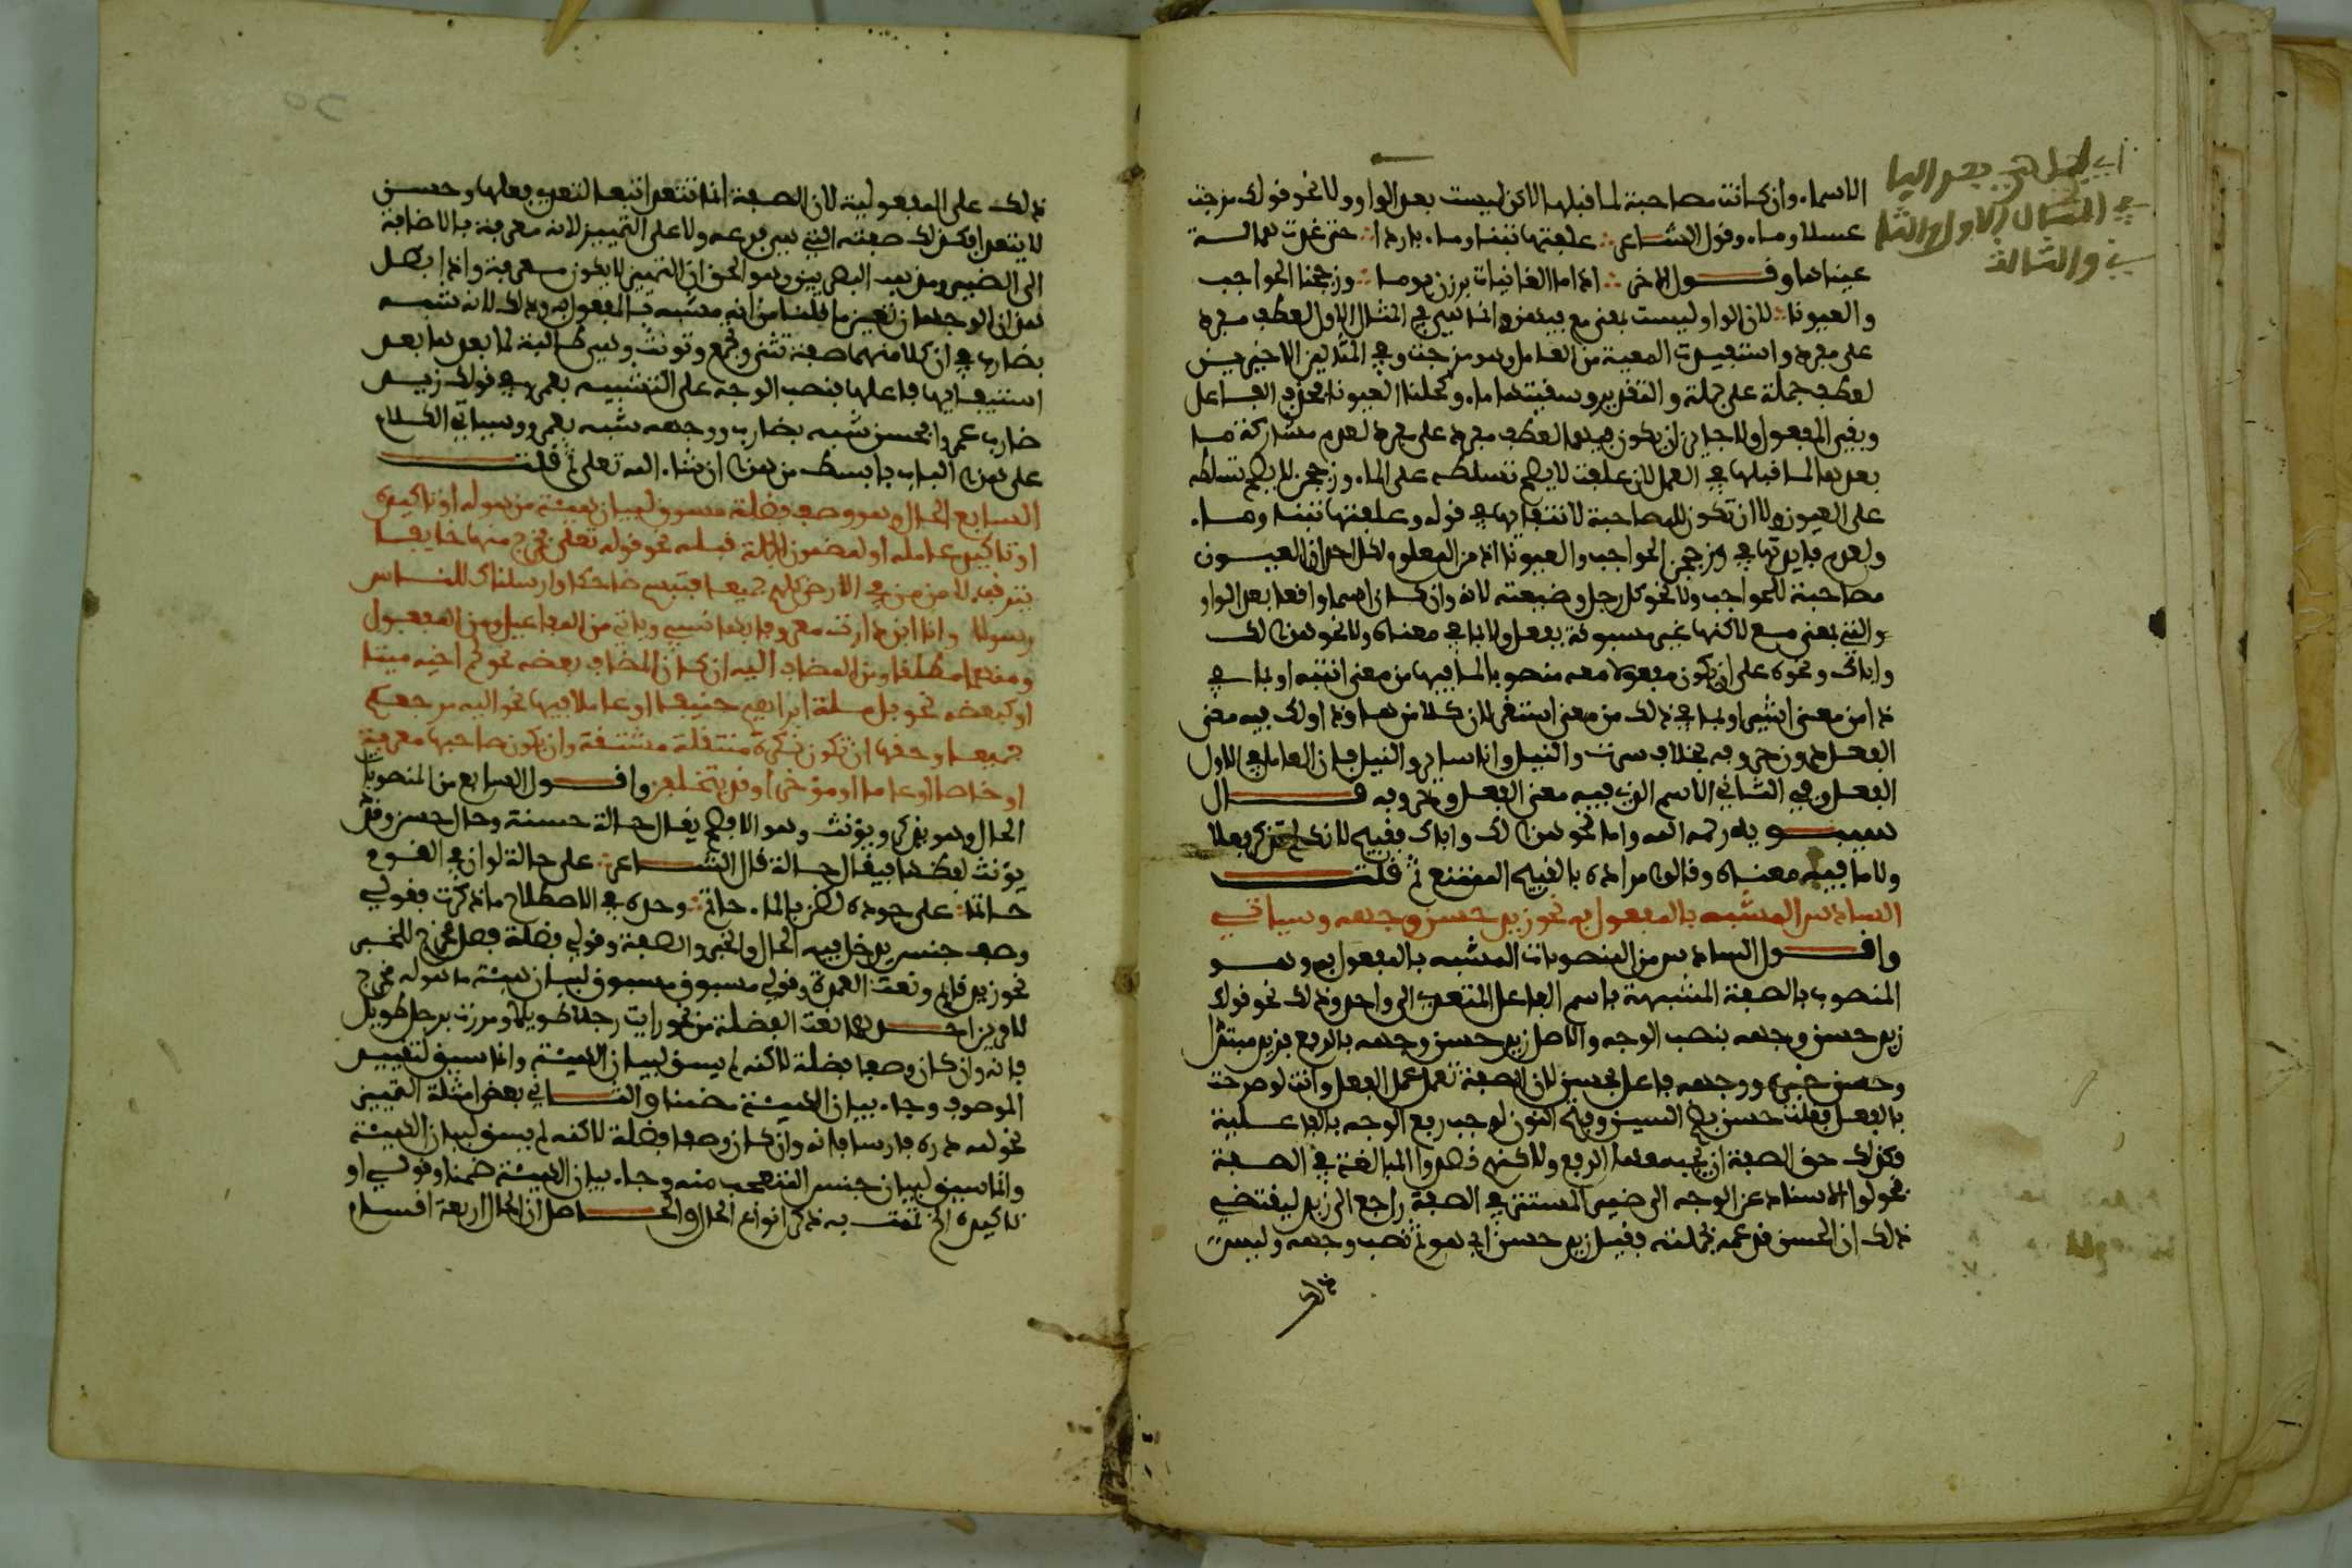 الاسماء وان كانت مصاحبة لما قبلها لاكن ليست بعد الواو ولا نحو قولك مزجت
عسلا وماء وقول الشاعر علفتها تبنا وماء باردا حتى غدت همالة
عيناها وقول الاخر اذا ما الغانيات برزن يوما وزججن الحواجب
والعيونا لان الواو ليست بمعنى مع فيهن وانما هي في المثال الاول لعطف مفرد
على مفرد واستفيدت المعية من العامل وهو مزجت وفي المثالين الاخيرين
لعطف جملة على جملة والتقدير وسقيتها ماء وكحلن العيونا فحذف الفاعل
وبقي المفعول ولا جائز ان يكون فيهما لعطف مفرد على مفرد لعدم مشاركة ما
بعدها لما قبلها في العمل لان علفت لا يصح تسلطه على الماء وزججن لا يصح تسلطه
على العيون ولا ان تكون للمصاحبة لانتفائها في قوله وعلفتها تبنا وماء
ولعدم فايدتها في وزججن الحواجب والعيونا اذ من المعلوم لكل احد ان العيون
مصاحبة للحواجب ولا نحو كل رجل وضيعته لانه وان كان اسما واقعا بعد الواو
والتي بمعنى مع لاكنها غير مسبوقة بفعل ولا بما في معناه ولا نحو هذا لك
واباك ونحوه على ان يكون مفعولا معه منصوبا لما فيها من معنى انتبه او لما في
ذا من معنى اشير او لما في ذلك من معنى استقر لان كلا من ها وذا ولك فيه معنى
الفعل دون حروفه بخلاف سرت والنيل وانا ساير والنيل فان العامل في الاول
الفعل وفي الثاني الاسم الذي فيه معنى الفعل وحروفه قال
سيبويه رحمه الله واما نحو هذا لك واباك فقبيح لانك لم تذكر فعلا
ولا ما فيه معناه وقالوا مراده بالقبيح الممتنع ثم قلت
السادس المشبه بالمفعول به نحو زيد حسن وجهه وسياتي
واقول السادس من المنصوبات المشبه بالمفعول به وهو
المنصوب بالصفة المشبهة باسم الفاعل المتعدي الى واحد وذلك نحو قولك
زيد حسن وجهه بنصب الوجه والاصل زيد حسن وجهه بالرفع فزيد مبتدا
وحسن خبره ووجهه فاعل بحسن لان الصفة تعمل عمل الفعل وانت لو صرحت
بالفعل فقلت حسن بضم السين وفتح النون لوجب رفع الوجه بالفاعلية
فكذلك حق الصفة ان يجب معها الرفع ولاكنهم قصدوا المبالغة في الصفة
فحولوا الاسناد عن الوجه الى ضمير المستتر في الصفة راجع الى زيد ليقتضي
ذلك ان الحسن قد عمه بجملته فقيل زيد حسن اي هو ثم نصب وجهه وليس
في المثال الاول والثا
ني والثالث
ذلك على المفعولية لان الصفة انما تتعدى تبعا لتعدي فعلها وحسن
لا يتعدى فكذلك صفته التي هي فرعه ولا على التمييز لانه معرفة بالاضافة
الى الضمير ومذهب البصريين وهو الحق ان التمييز لا يكون معرفة واذا بطل
هذان الوجهان تعين ما قلنا من انه مشبه بالمفعول به وذلك لانه شبه
بضارب في ان كلا منهما صفة تثنى وتجمع وتونث وهي طالبة لما بعدها بعد
استيفائها فاعلها فنصب الوجه على التشبيه بعمرو في قولك زيد
ضارب عمرو فحسن شبه بضارب ووجهه شبه بعمرو وسياتي الكلام
على هذا الباب بابسط من هذا ان شاء الله تعلى ثم قلت
السابع الحال وهو وصف فضلة مسوق لبيان هيئة من هو له او تاكيده
او تاكيد عامله او لمضمون الجملة قبله نحو قوله تعلى فخرج منها خايفا
يترقب لامن من في الارض كلهم جميعا فتبسم ضاحكا وارسلناك للناس
رسولا وانا ابن دارة معروفا بها نسبي وياتي من الفاعل ومن المفعول
ومنهما مطلقا ومن المضاف اليه ان كان المضاف بعضه نحو لحم اخيه ميتا
او كبعضه نحو بل ملة ابراهيم حنيفا او عاملا فيها نحو اليه مرجعكم
جميعا وحقها ان تكون نكرة منتقلة مشتقة وان يكون صاحبها معرفة
او خاصا او عاما او مؤخرا وقد يتخلفن واقول السابع من المنصوبات
الحال وهو يذكر ويؤنث وهو الافصح يقال حالة حسنة وحال حسن وقد
يؤنث لفظها فيقال حالة قال الشاعر على حالة لو ان في القوم
حاتما على جوده لضن بالماء حاتم وحده في الاصطلاح ما ذكرت فقولي
وصف جنس يدخل فيه الحال والخبر والصفة وقولي فضلة فصل مخرج للخبر
نحو زيد قائم ونعت العمدة وقولي مسوق لبيان هيئة ما هو له مخرج
لامرين احدهما نعت الفضلة من نحو رايت رجلا طويلا ومررت برجل طويل
فانه وان كان وصفا فضلة لاكنه لم يسق لبيان الهيئة وانما سيق لتقييد
الموصوف وجاء بيان الهيئة ضمنا والثاني بعض امثلة التمييز
نحو لله دره فارسا فانه وان كان وصفا فضلة لاكنه لم يسق لبيان الهيئة
وانما سيق لبيان جنس المتعجب منه وجاء بيان الهيئة ضمنا وقولي او
تاكيده الخ تممت به ذكر انواع الحال والحاصل ان الحال اربعة اقسام